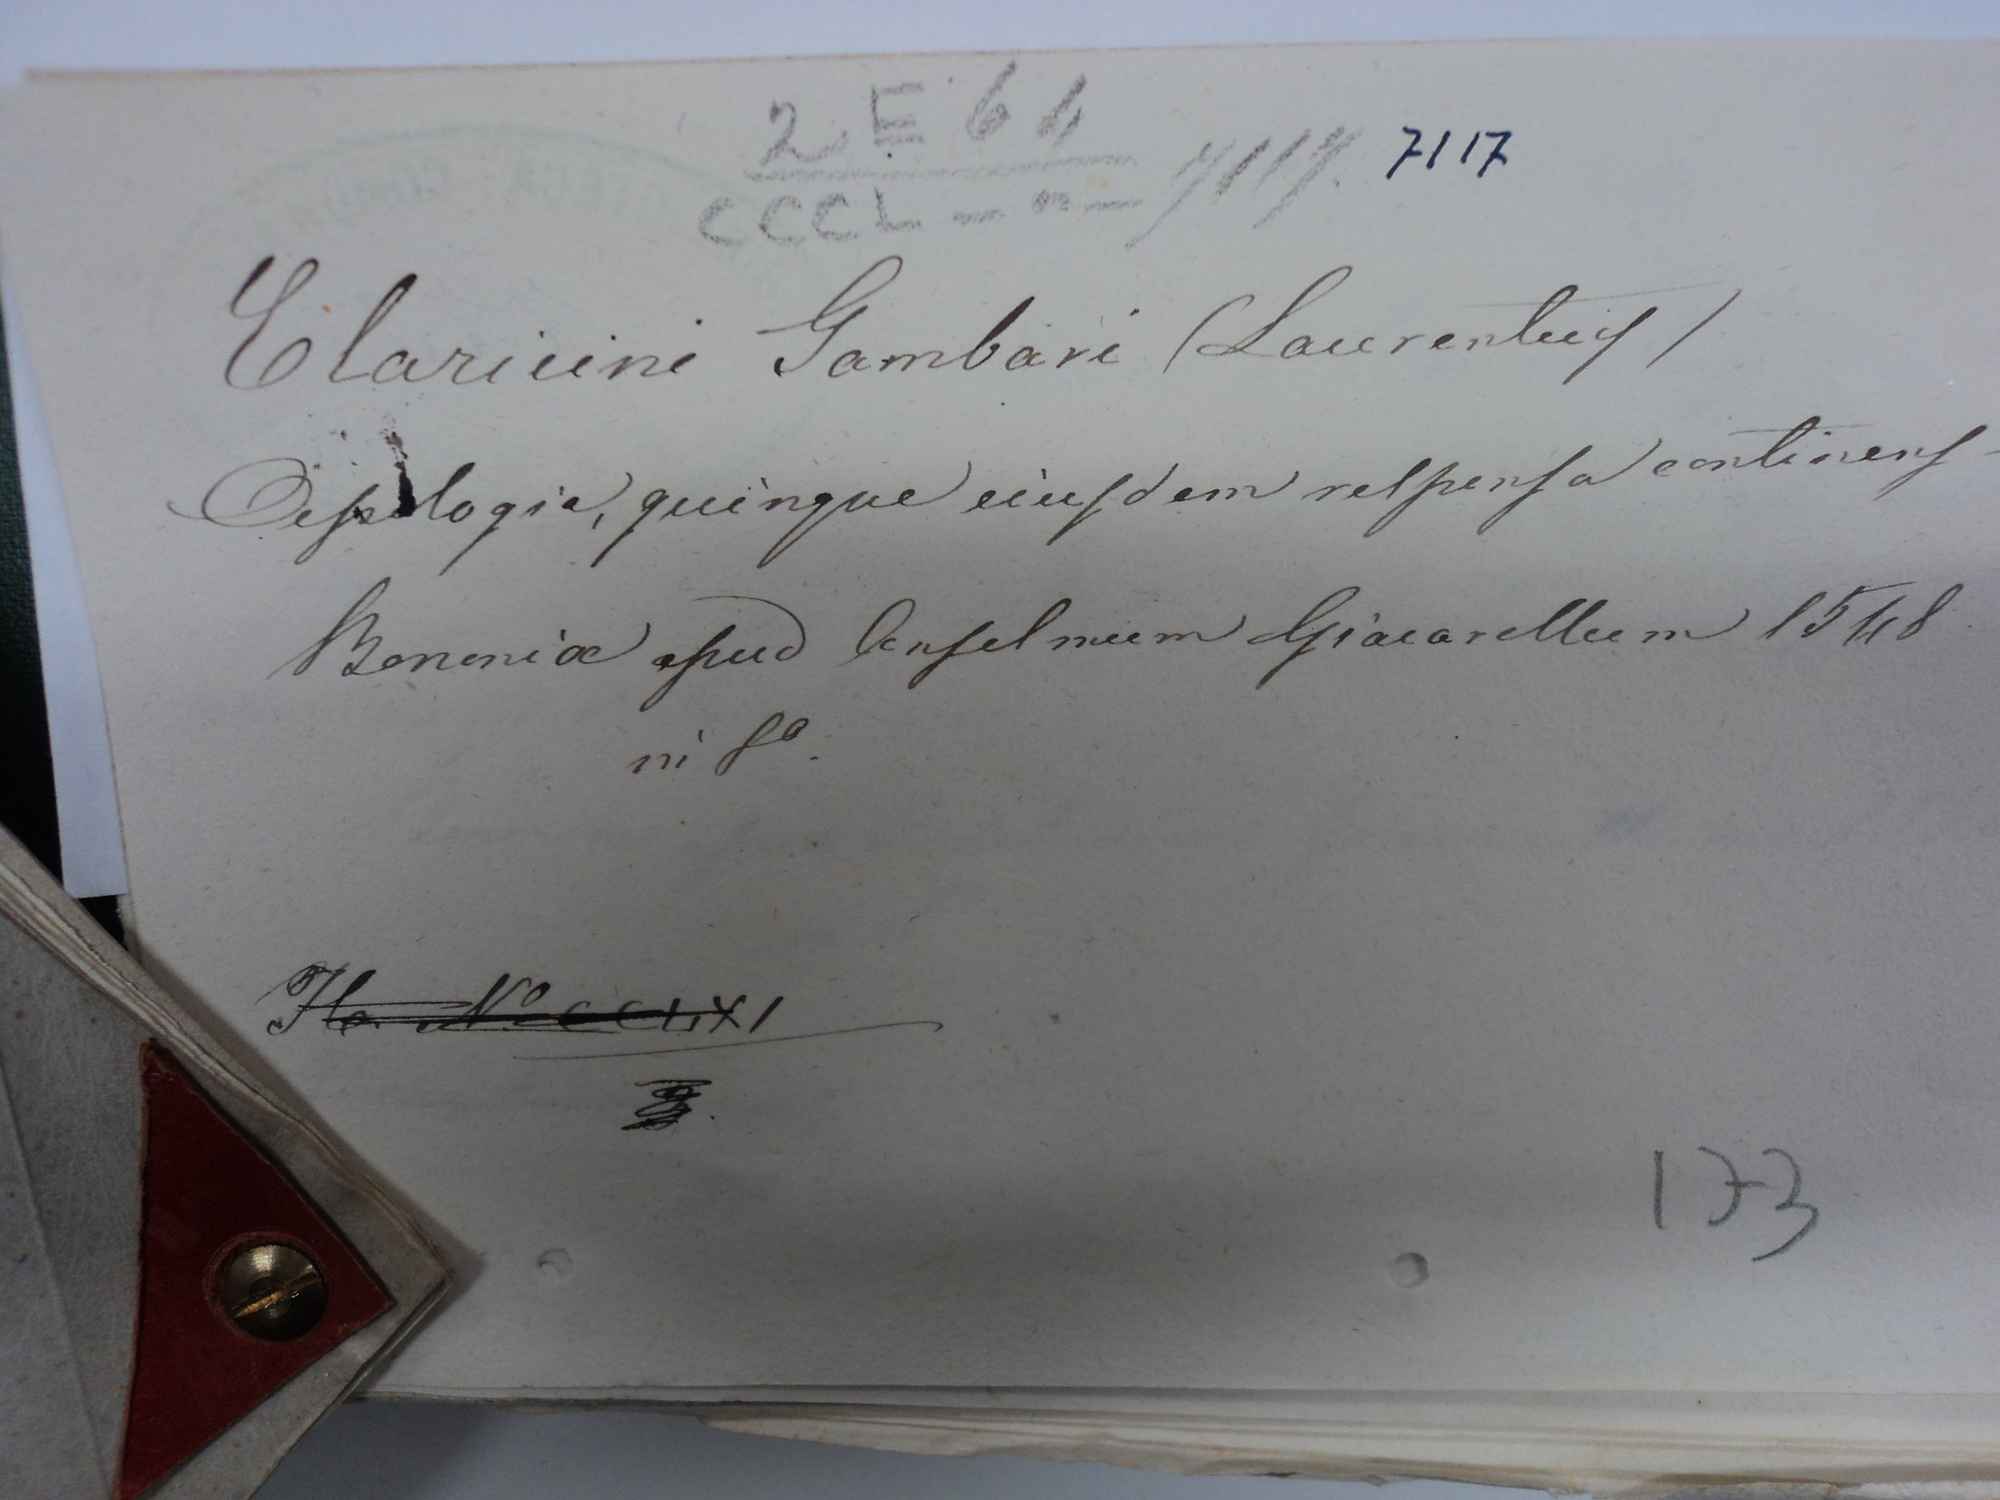 2 E 64
CCCL - n - 7117. 7117
Claricini Gambari (Laurentius)
Apologia, quinque eiusdem responsa continens -
Bononiæ apud Anselmum Giacarellum 1548
in 8º.
H. Nº CCLXXI
173